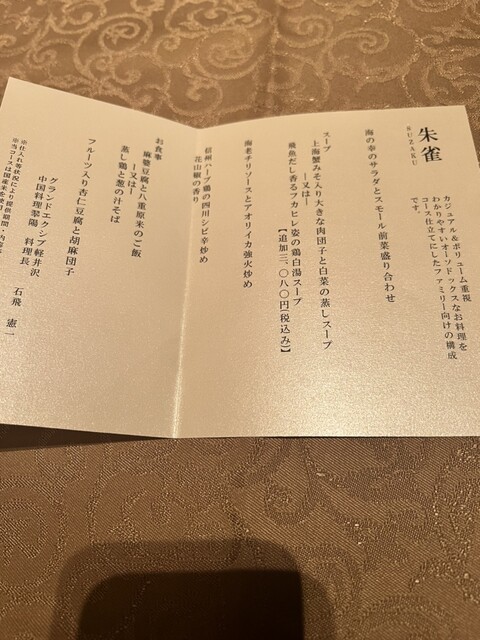 朱雀
SUZAKU
カジュアル&ボリューム重視
わかりやすいオーソドックスなお料理を
コース仕立てにしたファミリー向けの構成
です。
海の幸のサラダとスモール前菜盛り合わせ
スープ
上海蟹みそ入り大きな肉団子と白菜の蒸しスープ
―又は―
飛魚だし香るフカヒレ姿の鶏白湯スープ
【追加三、〇八〇円(税込み)】
海老チリソースとアオリイカ強火炒め
信州ハーブ鶏の四川シビ辛炒め
花山椒の香り
お食事
麻婆豆腐と八重原米のご飯
―又は―
蒸し鶏と葱の汁そば
フルーツ入り杏仁豆腐と胡麻団子
グランドエクシブ軽井沢
中国料理翠陽 料理長 石飛 憲一
※仕入れ等状況により提供期間・内容
※当コースは国産米を使用